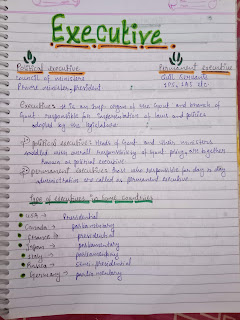 Executive
Political executive
Permanent executive
Council of ministers
Civil Servants
Prime minister, president
IPS, IAS etc.
Executive: It is an imp organ of the Govt and branch of
Govt responsible for implementation of laws and policies
adopted by the legislature
political executive: Heads of Govt and their ministers
saddled with overall responsibility of Govt policy, all together
known as political executive
permanent executive: those who responsible for day to day
administration are called as permanent executive
Type of executives in some countries
USA → Presidential
Canada → parliamentary
France → presidential
Japan → parliamentary
Italy → parliamentary
Russia → Semi-presidential
Germany → parliamentary